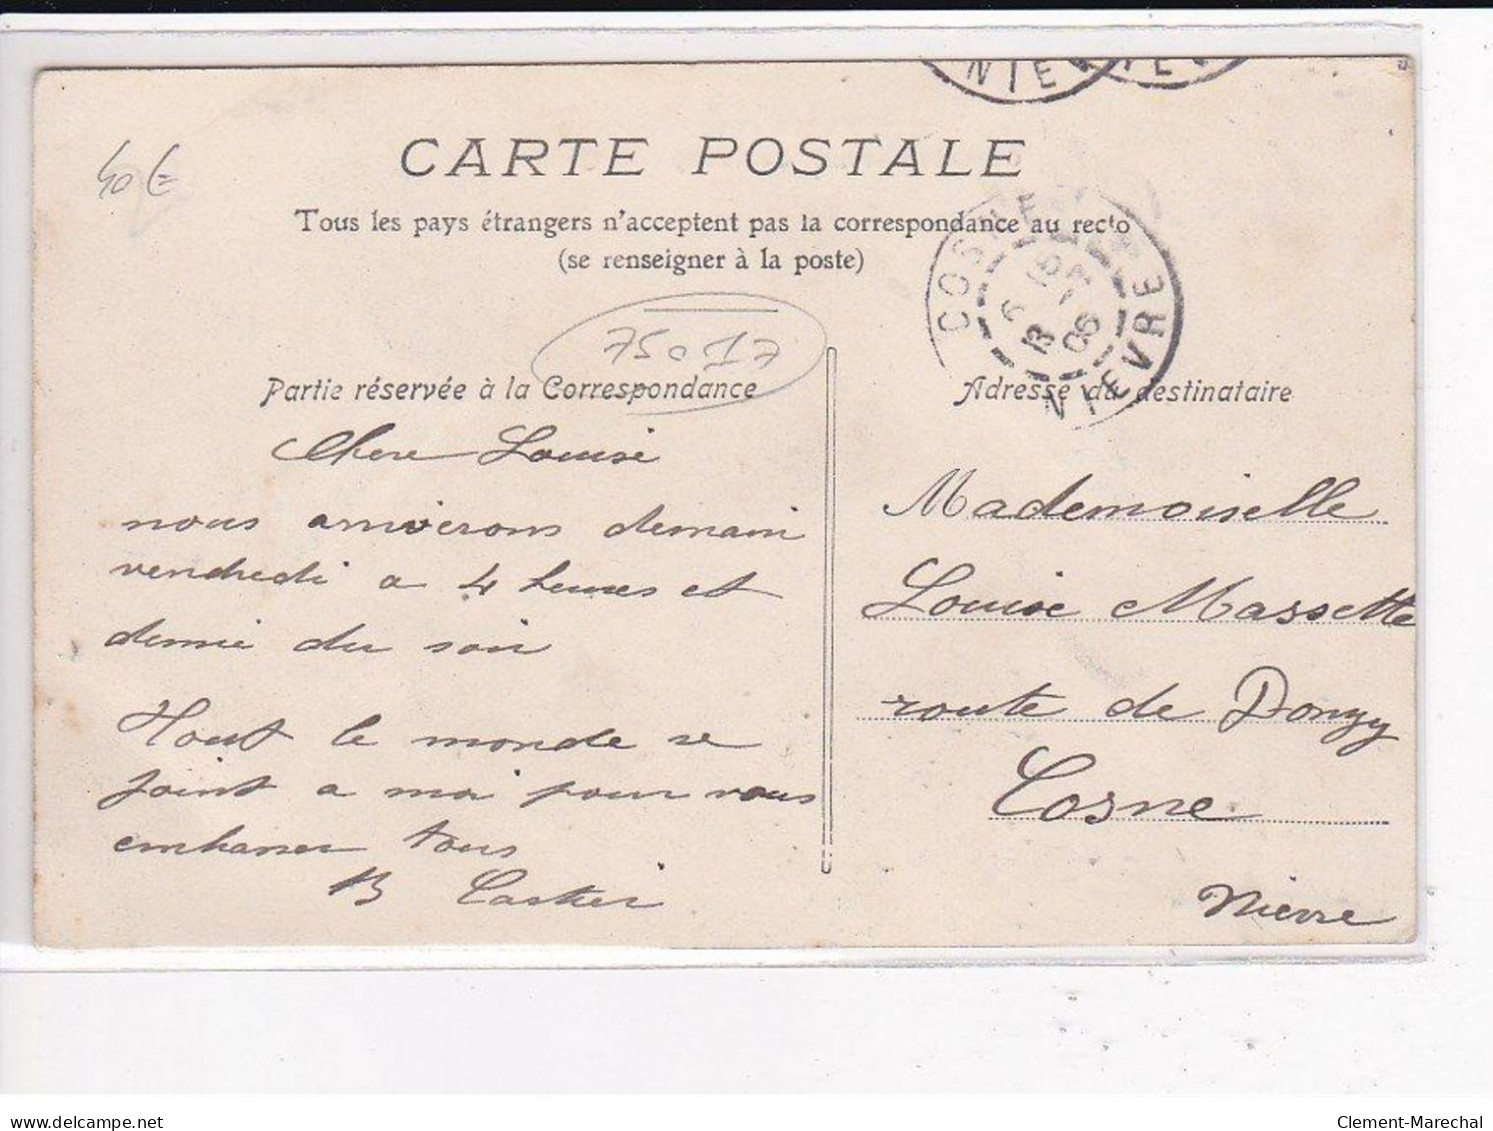 NIE
CARTE POSTALE
40€
Tous les pays étrangers n'acceptent pas la correspondance au recto
(se renseigner à la poste)
COSNE
NIEVRE
06
75017
Partie réservée à la Correspondance
Adresse du destinataire
Chere Louise
nous arriverons demain
vendredi a 4 heures et
demie du soir
Tout le monde se
joint a moi pour vous
embrasser tous
B Castier
Mademoiselle
Louise Massette
route de Donzy
Cosne
Nievre
www.delcampe.net
Clement-Marechal